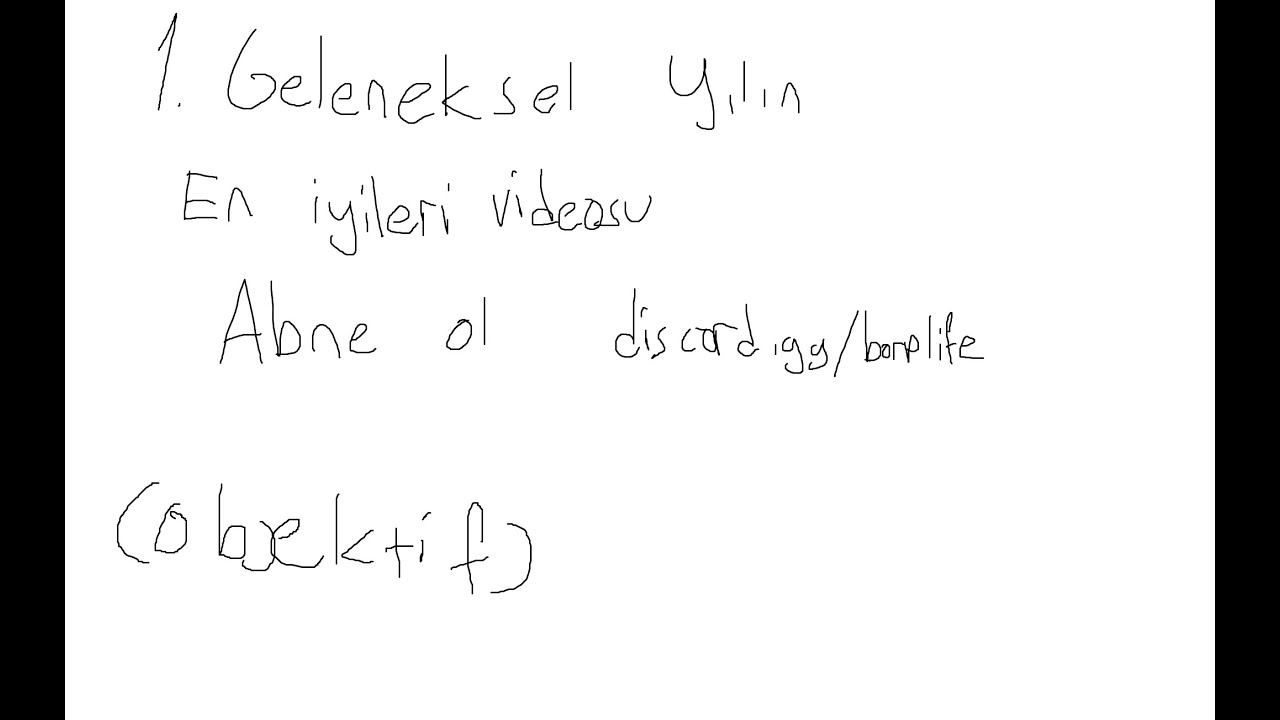 1. Geleneksel Yılın
En iyileri videosu
Abne ol discord.gg/bonplife
(objektif)